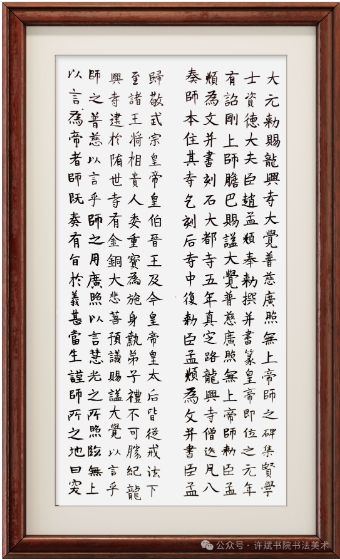 大元勅賜龍興寺大覺普慈廣照無上帝師之碑集賢學
士資德大夫臣趙孟頫奉勅撰并書篆皇帝即位之元年
有詔剛上師膽巴賜謚大覺普慈廣照無上帝師勅臣孟
頫為文并書刻石大都寺五年真定路龍興寺僧迭凡八
奏師本住其寺乞刻后寺中復勅臣孟頫為文并書臣孟
歸敬武宗皇帝皇伯晉王及今皇帝皇太后皆從戒法下
至諸王將相貴人委重寶為施身執弟子禮不可勝紀龍
興寺建於隋世寺有金銅大悲菩預議賜謚大覺以言乎
師之普慈以言乎師之用廣照以言慧光之所照臨無上
以言為帝者師既奏有旨於義甚當生謹師所之地曰突
公众号·许斌书院书法美术